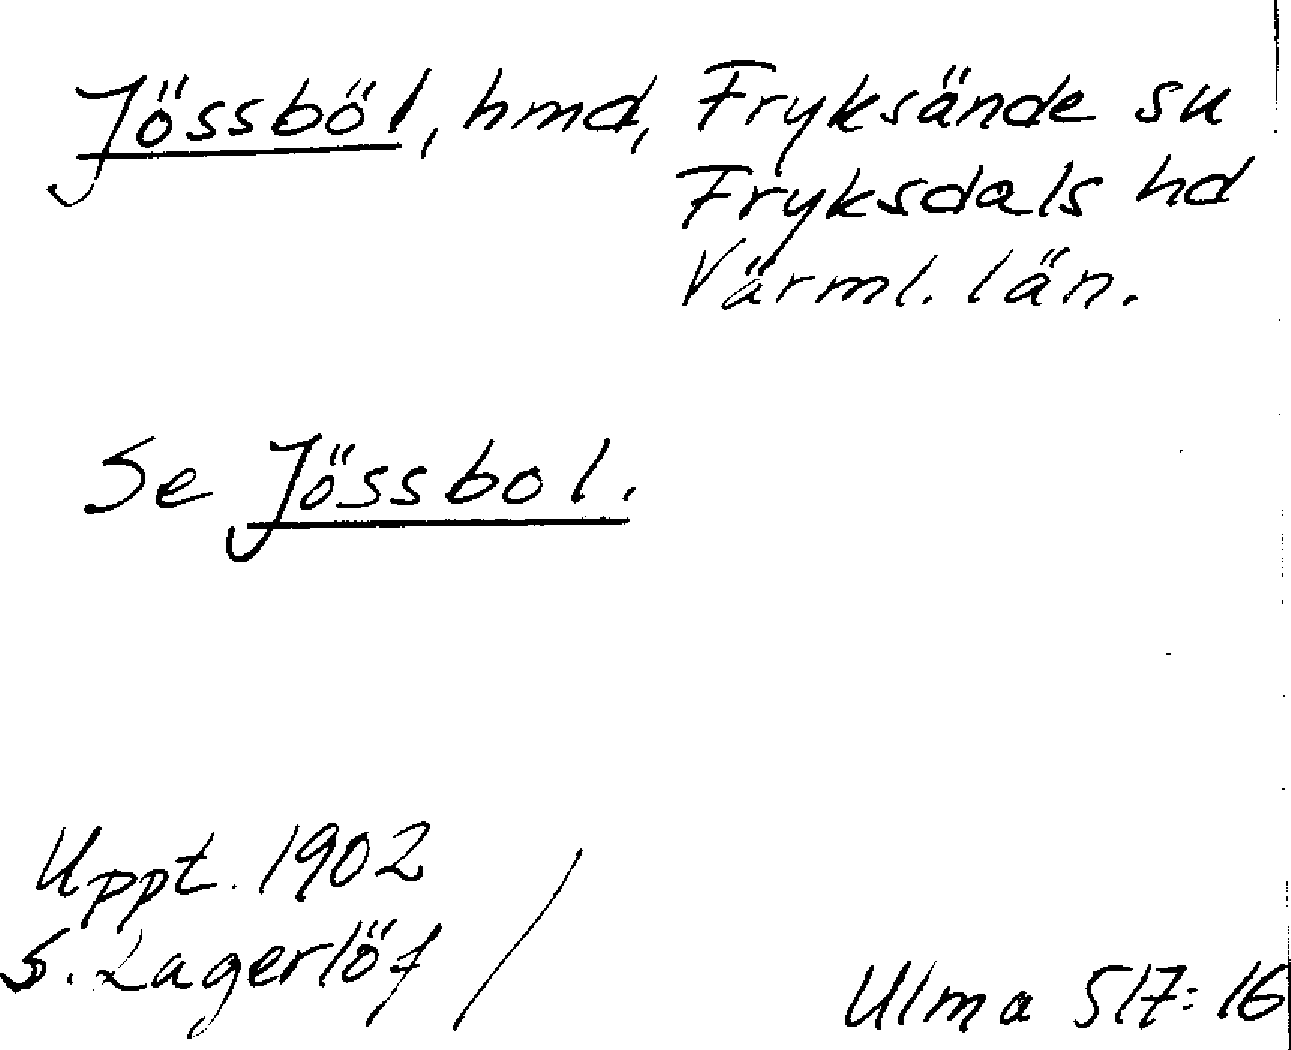 Jössböl, hmd, Fryksände sn
Fryksdals hd
Värml. län.
Se Jössbol.
Uppt. 1902
S. Lagerlöf /
Ulma 517:16